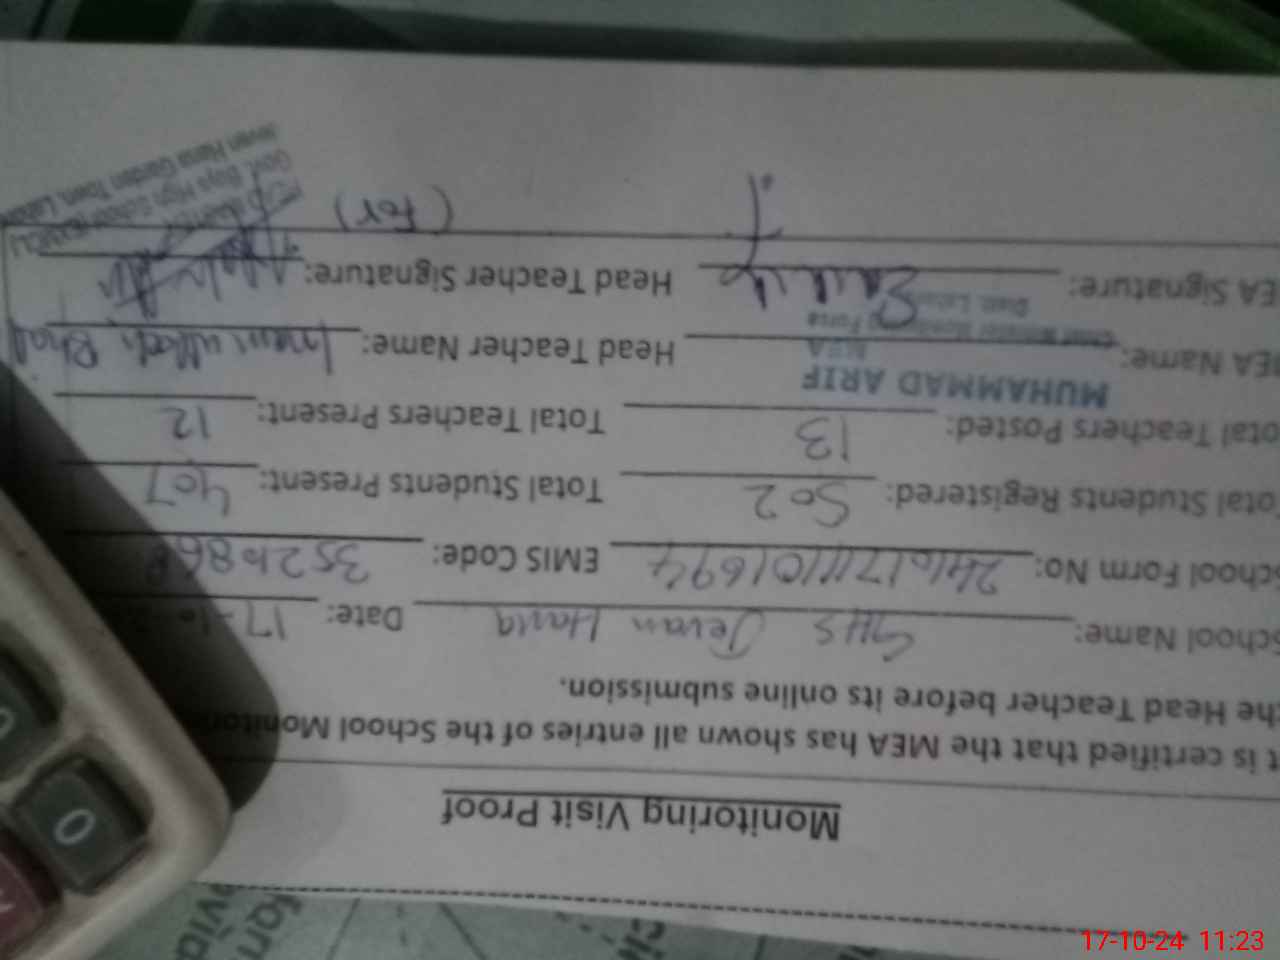 Monitoring Visit Proof
t is certified that the MEA has shown all entries of the School Monitor
he Head Teacher before its online submission.
School Name: GHS Jevan Hana Date: 17-10
School Form No: EMIS Code:
Total Students Registered: 502 Total Students Present: 407
Total Teachers Posted: 13 Total Teachers Present: 12
MUHAMMAD ARIF
MEA
MEA Name: Head Teacher Name:
Chief Minister Monitoring Force
Distt. Lahore
EA Signature: Head Teacher Signature:
(For)
Govt. Boys High School
Jevan Hana Garden Town, Lahore
0
17-10-24 11:23